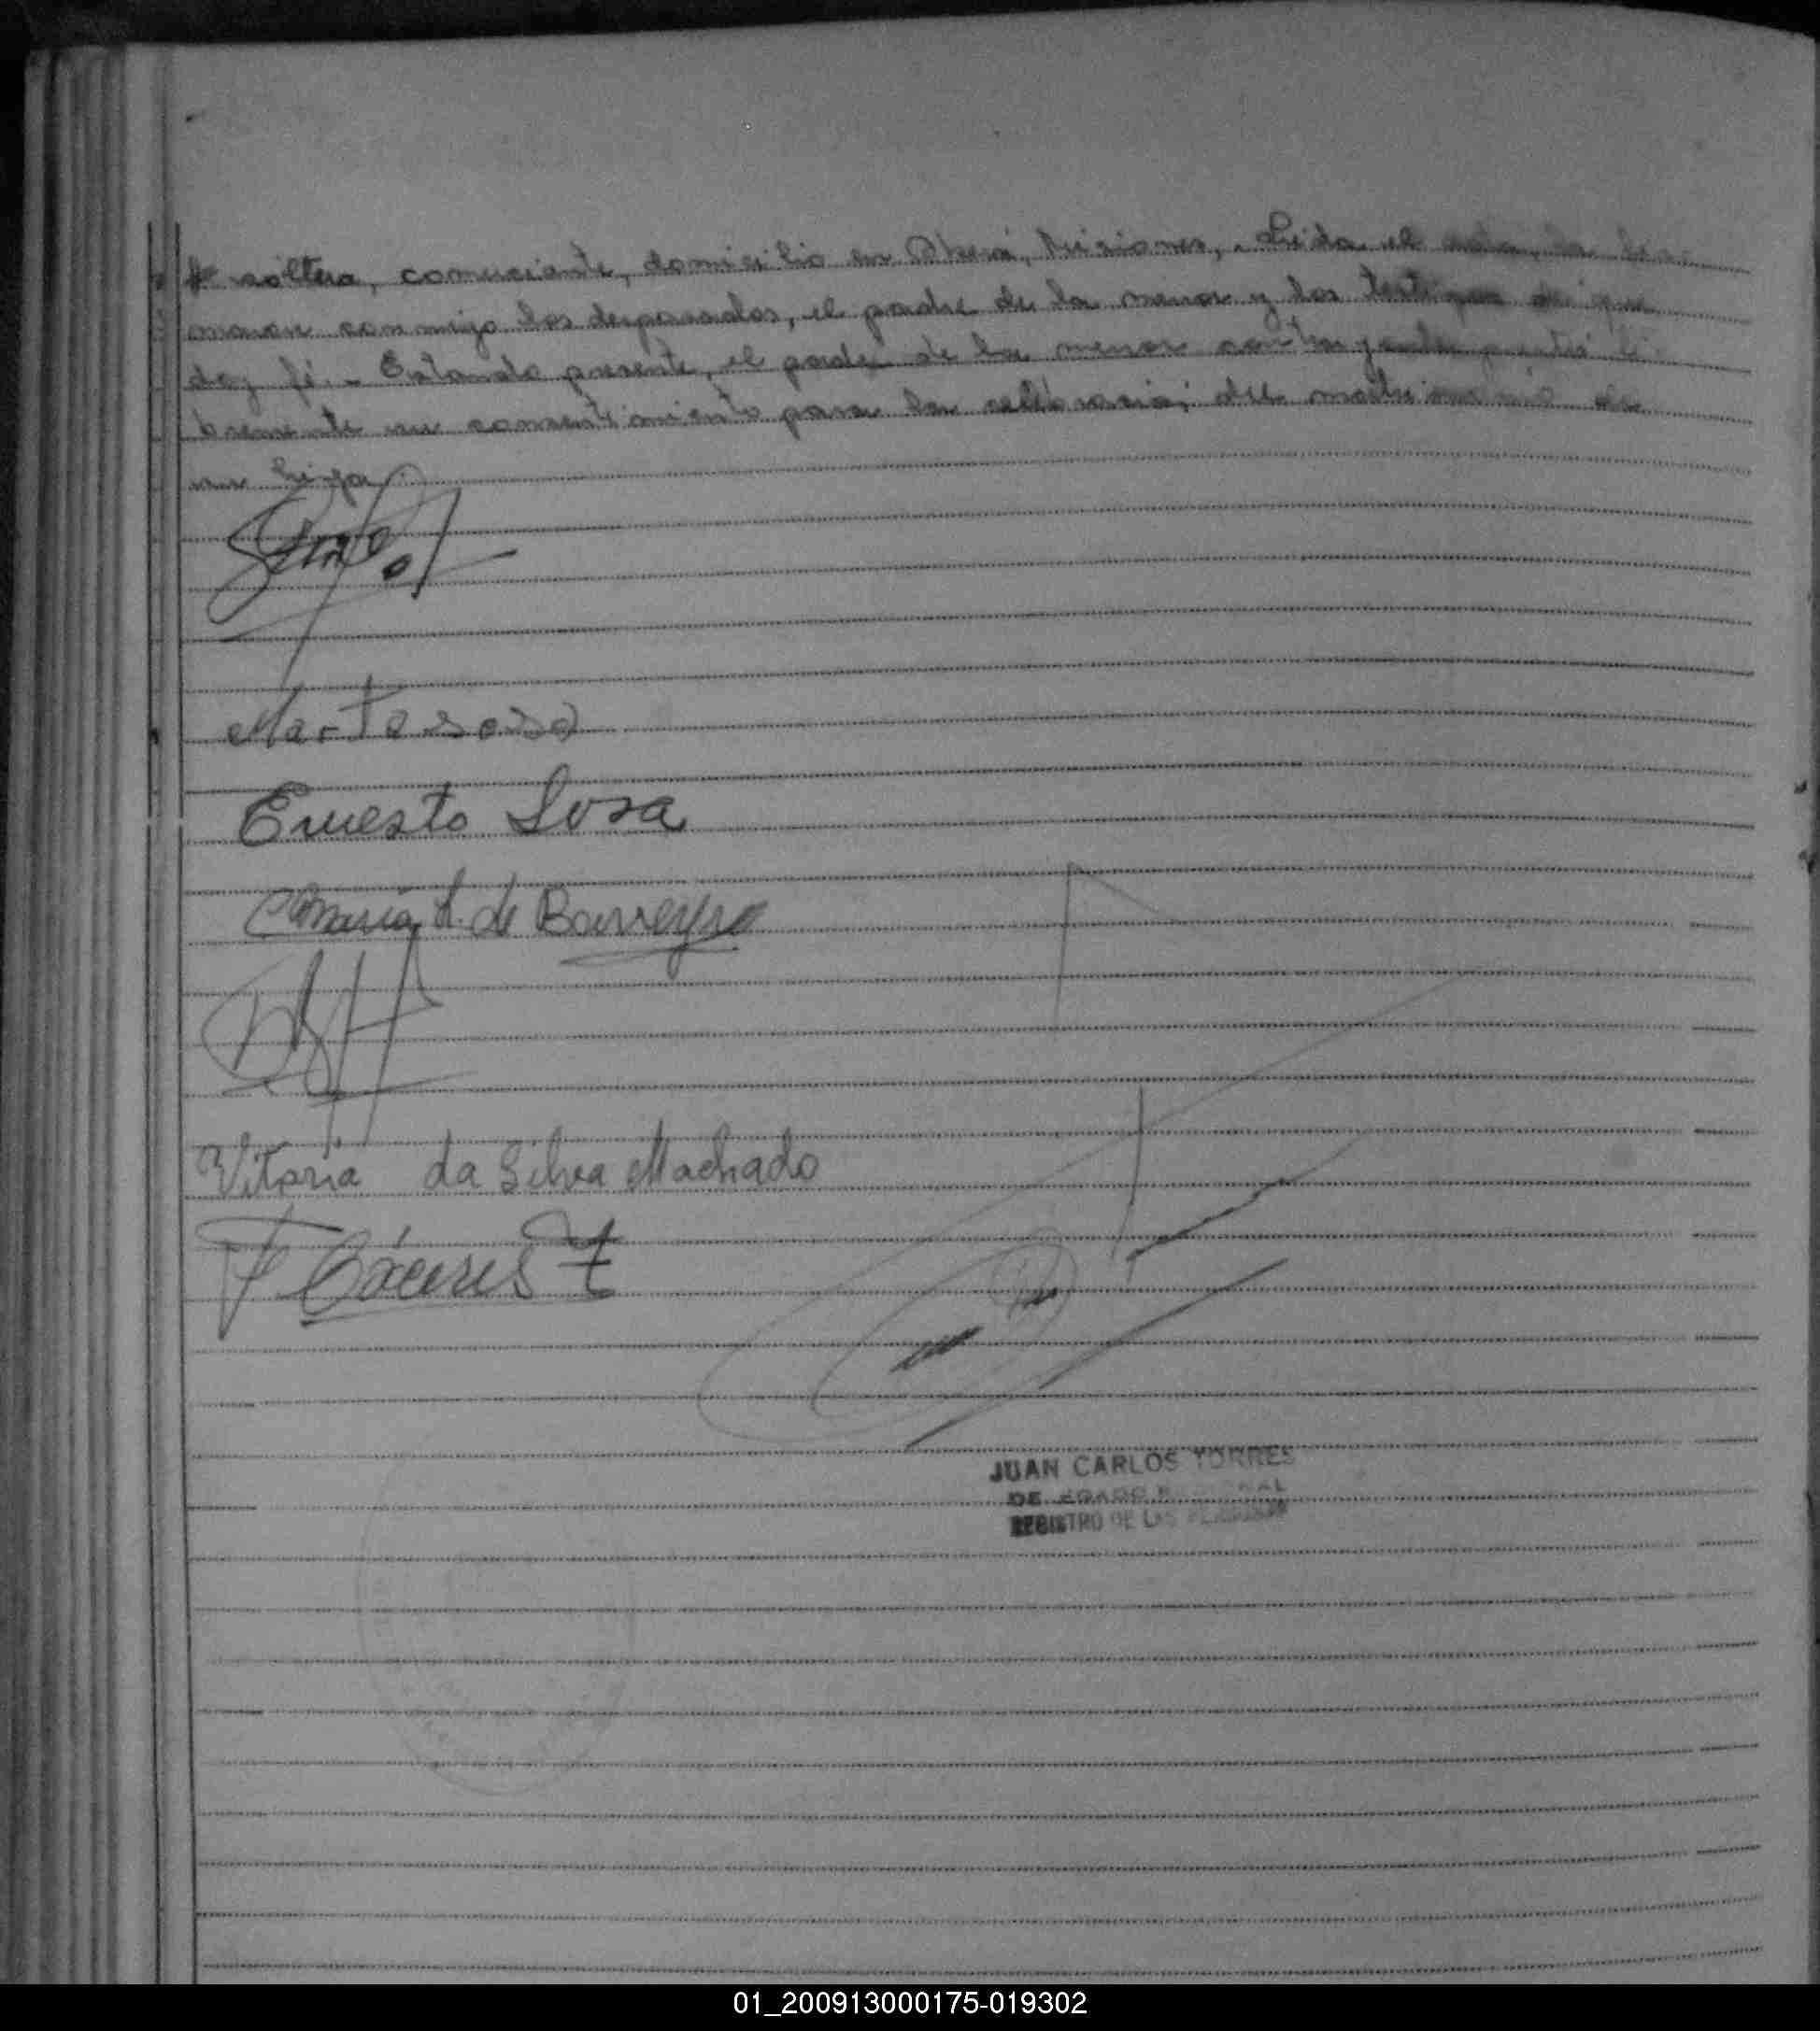 soltera, comerciante, domicilio en Oberá, Misiones, . Leida el acta, la fir-
maron conmigo los desposados, el padre de la menor y los testigos de que
doy fé. - Estando presente, el padre de la menor contrayente prestó li-
bremente su consentimiento para la celebración del matrimonio de
su hija
Marta sosa
Ernesto Sosa
Maria A. de Barreyro
Vitoria da Silva Machado
F Cáceres
JUAN CARLOS TORRES
DE
REGISTRO DE LAS PERSONAS
01_200913000175-019302